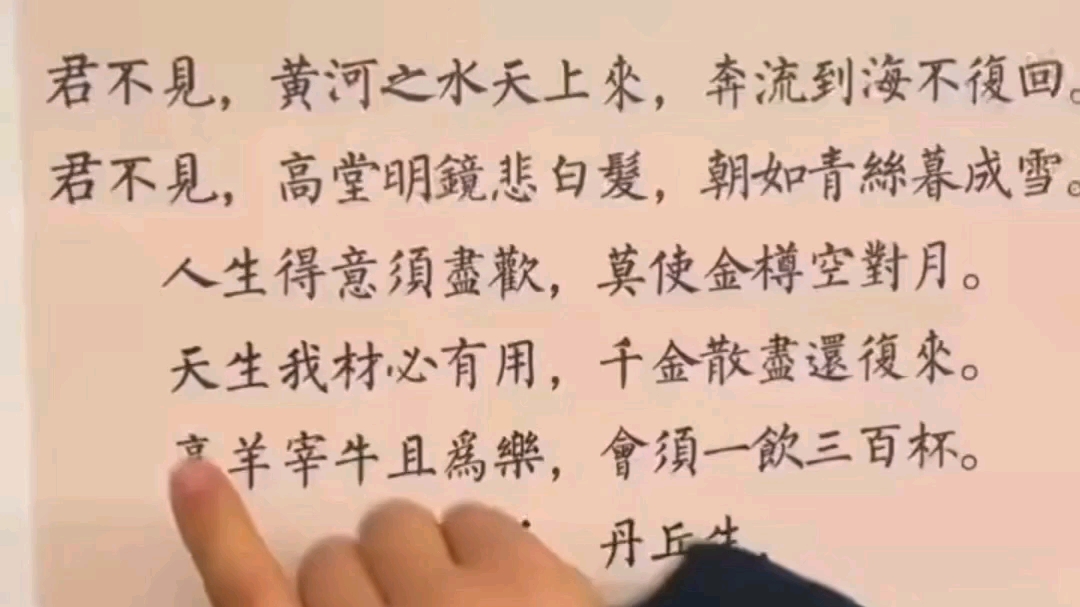 君不見，黃河之水天上來，奔流到海不復回。
君不見，高堂明鏡悲白髮，朝如青絲暮成雪。
人生得意須盡歡，莫使金樽空對月。
天生我材必有用，千金散盡還復來。
羊宰牛且爲樂，會須一飲三百杯。
丹丘生，